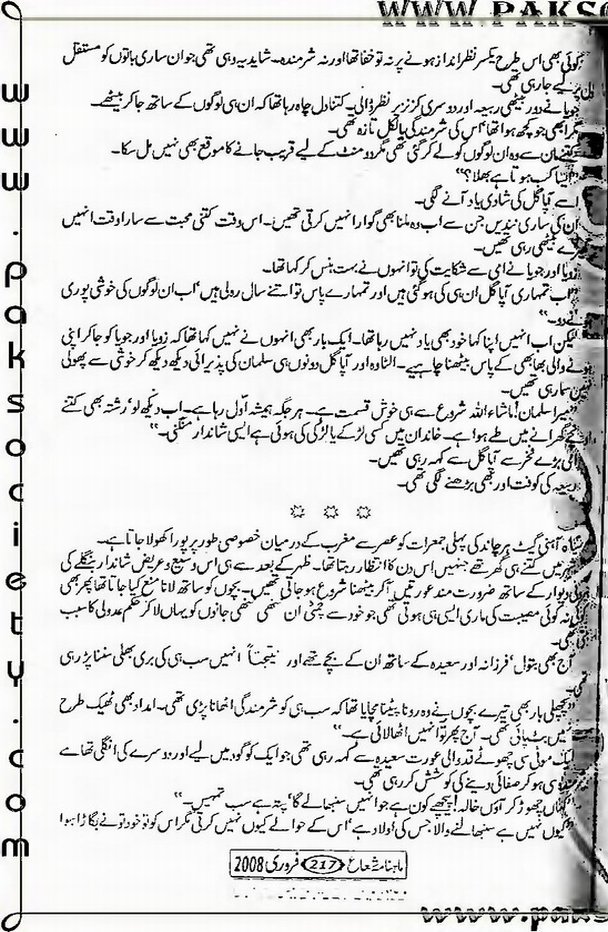 WWW.PAKSO
www.paksociety.com
کوئی بھی اس طرح یکسر نظر انداز ہونے پر نہ تو خفا تھا اور نہ شرمندہ۔ شاید یہ وہی تھی جو ان ساری باتوں کو مستقل
لیے جا رہی تھی۔
جویا نے دور بیٹھی ربیعہ اور دوسری کزنز پر نظر ڈالی۔ کتنا دل چاہ رہا تھا کہ ان ہی لوگوں کے ساتھ جا کر بیٹھے۔
مگر ابھی جو کچھ ہوا تھا، اس کی شرمندگی بالکل تازہ تھی۔
سے وہ ان لوگوں کو لے کر گئی تھی مگر دو منٹ کے لیے قریب جانے کا موقع بھی نہیں مل سکا۔
ایسا کب ہوتا ہے بھلا؟"
اسے آپا گل کی شادی یاد آنے لگی۔
ان کی ساری نندیں جن سے اب وہ ملنا بھی گوارا نہیں کرتی تھیں۔ اس وقت کتنی محبت سے سارا وقت انہیں
بیٹھی رہی تھیں۔
زویا اور جویا نے امی سے شکایت کی تو انہوں نے بہت ہنس کر کہا تھا۔
"اب تمہاری آپا گل ان ہی کی ہو گئی ہیں اور تمہارے پاس تو اتنے سال رہ لی ہیں، اب ان لوگوں کی خوشی پوری
ہونے دو۔"
لیکن اب انہیں اپنا کہا خود بھی یاد نہیں رہا تھا۔ ایک بار بھی انہوں نے نہیں کہا تھا کہ زویا اور جویا کو جا کر اپنی
ہونے والی بھابھی کے پاس بیٹھنا چاہیے۔ الٹا وہ اور آپا گل دونوں ہی سلمان کی پذیرائی دیکھ دیکھ کر خوشی سے پھولی
نہیں سما رہی تھیں۔
"میرا سلمان! ماشاءاللہ شروع سے ہی خوش قسمت ہے۔ ہر جگہ ہمیشہ اول رہا ہے۔ اب دیکھ لو رشتہ بھی کتنے
گھرانے میں طے ہوا ہے۔ خاندان میں کسی لڑکے یا لڑکی کی ہوئی ہے ایسی شاندار منگنی۔"
امی بڑے فخر سے آپا گل سے کہہ رہی تھیں۔
ربیعہ کی کوفت اور بھی بڑھنے لگی تھی۔
☼ ☼ ☼
آہنی گیٹ ہر چاند کی پہلی جمعرات کو عصر سے مغرب کے درمیان خصوصی طور پر پورا کھولا جاتا ہے۔
شہر میں کتنے ہی گھر تھے جنہیں اس دن کا انتظار رہتا تھا۔ ظہر کے بعد سے ہی اس وسیع و عریض شاندار بنگلے کی
دیوار کے ساتھ ضرورت مند عورتیں آ کر بیٹھنا شروع ہو جاتی تھیں۔ بچوں کو ساتھ لانا منع کیا جاتا تھا پھر بھی
کوئی نہ کوئی مصیبت کی ماری ایسی ہی ہوتی تھی جو خود سے چمٹی ان ننھی ننھی جانوں کو یہاں لا کر حکم عدولی کا سبب
تھی۔
آج بھی بتول، فرزانہ اور سعیدہ کے ساتھ ان کے بچے تھے اور نتیجتاً انہیں سب ہی کی بری بھلی سننا پڑ رہی
تھی۔
"پچھلی بار بھی تیرے بچوں نے وہ رونا پیٹنا مچایا تھا کہ سب ہی کو شرمندگی اٹھانا پڑی تھی۔ امداد بھی ٹھیک طرح
نہیں بٹ پائی تھی۔ آج پھر تو انہیں اٹھا لائی ہے۔"
ایک موٹی سی چھوٹے قد والی عورت سعیدہ سے کہہ رہی تھی جو ایک کو گود میں لیے اور دوسرے کی انگلی تھامے
سی ہو کر صفائی دینے کی کوشش کر رہی تھی۔
"کہاں چھوڑ کر آؤں خالہ! پیچھے کون ہے جو انہیں سنبھالے گا، پتہ ہے سب تمہیں۔"
"کیوں نہیں ہے سنبھالنے والا جس کی اولاد ہے، اس کے حوالے کیوں نہیں کرتی مگر اس کو تو خود تو نے بگاڑا ہوا
ماہنامہ شعاع 217 فروری 2008
www.paks